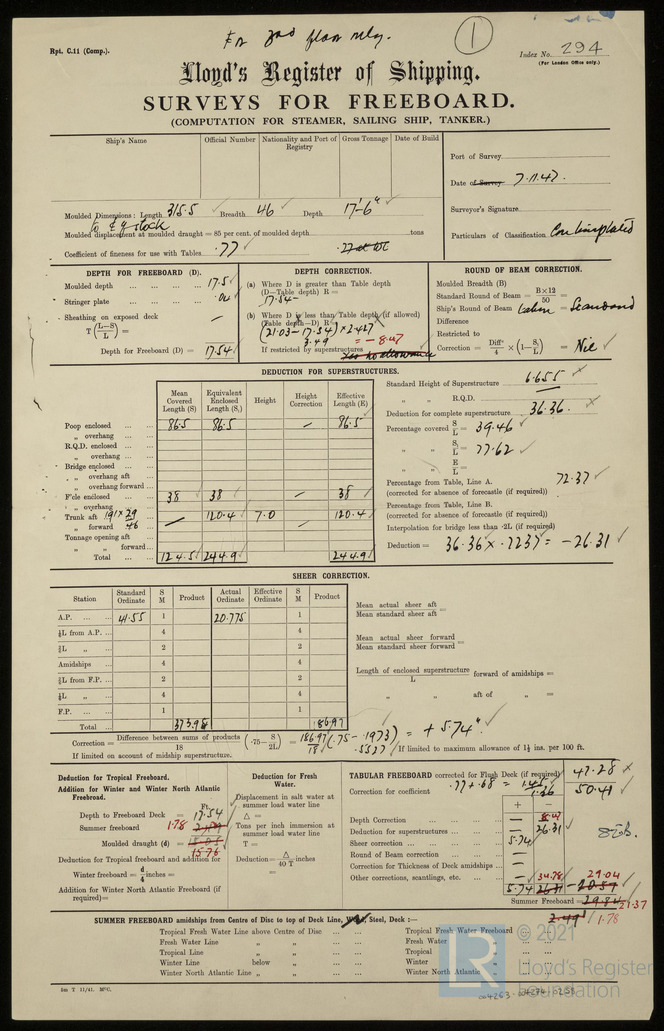 For 3rd plan only.
1
Rpt. C.11 (Comp.).
Index No. 294
(For London Office only.)
Lloyd's Register of Shipping.
SURVEYS FOR FREEBOARD.
(COMPUTATION FOR STEAMER, SAILING SHIP, TANKER.)
Ship's Name
Official Number
Nationality and Port of Registry
Gross Tonnage
Date of Build
Port of Survey
Date of Survey 7.11.47.
Surveyor's Signature
Particulars of Classification Contemplated
Moulded Dimensions: Length 315.5 Breadth 46 Depth 17'-6"
Moulded displacement at moulded draught = 85 per cent. of moulded depth tons
Coefficient of fineness for use with Tables .77
DEPTH FOR FREEBOARD (D).
Moulded depth 17.5
Stringer plate .04
Sheathing on exposed deck —
T (L—S / L) =
Depth for Freeboard (D) = 17.54
DEPTH CORRECTION.
(a) Where D is greater than Table depth
(D—Table depth) R =
17.54-
(b) Where D is less than Table depth (if allowed)
(Table depth—D) R =
(21.03 - 17.54) × 2.427
3.49 = - 8.47
If restricted by superstructures
ROUND OF BEAM CORRECTION.
Moulded Breadth (B)
Standard Round of Beam = B×12 / 50 =
Ship's Round of Beam taken = Standard
Difference
Restricted to
Correction = Diffce / 4 × (1—S₁ / L) = Nil
DEDUCTION FOR SUPERSTRUCTURES.
Mean Covered Length (S)
Equivalent Enclosed Length (S₁)
Height
Height Correction
Effective Length (E)
Poop enclosed 86.5 86.5 — 86.5
„ overhang
R.Q.D. enclosed
„ overhang
Bridge enclosed
„ overhang aft
„ overhang forward
F'cle enclosed 38 38 — 38
„ overhang
Trunk aft 191 × 29 / 46 — 120.4 7.0 120.4
„ forward
Tonnage opening aft
„ „ forward
Total 124.5 244.9 244.9
Standard Height of Superstructure 6.655
„ „ R.Q.D.
Deduction for complete superstructure 36.36.
Percentage covered S / L = 39.46
„ „ S₁ / L = 77.62
„ „ E / L =
Percentage from Table, Line A. 72.37
(corrected for absence of forecastle (if required))
Percentage from Table, Line B.
(corrected for absence of forecastle (if required))
Interpolation for bridge less than ·2L (if required)
Deduction = 36.36 × .7237 = - 26.31
SHEER CORRECTION.
Station
Standard Ordinate
S M
Product
Actual Ordinate
Effective Ordinate
S M
Product
A.P. 41.55 1 20.775 1
⅙L from A.P. 4 4
⅓L „ 2 2
Amidships 4 4
⅓L from F.P. 2 2
⅙L „ 4 4
F.P. 1 1
Total 373.95 186.97
Mean actual sheer aft / Mean standard sheer aft =
Mean actual sheer forward / Mean standard sheer forward =
Length of enclosed superstructure / L forward of amidships =
„ „ aft of „ =
Correction = Difference between sums of products / 18 (·75— S / 2L) = 186.97 / 18 (.75 - .1973) = + 5.74"
.5527
If limited on account of midship superstructure.
If limited to maximum allowance of 1½ ins. per 100 ft.
Deduction for Tropical Freeboard.
Addition for Winter and Winter North Atlantic Freeboard.
Ft.
Depth to Freeboard Deck = 17.54
Summer freeboard = 1.78
Moulded draught (d) = 15.76
Deduction for Tropical freeboard and addition for
Winter freeboard = d / 4 inches =
Addition for Winter North Atlantic Freeboard (if required) =
Deduction for Fresh Water.
Displacement in salt water at summer load water line
Δ =
Tons per inch immersion at summer load water line
T =
Deduction = Δ / 40 T inches
=
TABULAR FREEBOARD corrected for Flush Deck (if required) 47.28
Correction for coefficient .77 + .68 / 1.36 = 1.45 / 1.36 50.41
+ —
Depth Correction — 8.47
Deduction for superstructures — 26.31
Sheer correction 5.74
Round of Beam correction —
Correction for Thickness of Deck amidships —
Other corrections, scantlings, etc. —
34.78 29.04
5.74 26.31 - 20.57
Summer Freeboard = 29.84 21.37
2.49' 1.78
SUMMER FREEBOARD amidships from Centre of Disc to top of Deck Line, Wood, Steel, Deck:—
Tropical Fresh Water Line above Centre of Disc
Fresh Water Line „ „
Tropical Line „ „
Winter Line below „
Winter North Atlantic Line „ „
Tropical Fresh Water Freeboard
Fresh Water „
Tropical „
Winter „
Winter North Atlantic „
1m T 11/41. MᶜC.
LR © 2021
Lloyd's Register
Foundation
004263-004274-0258